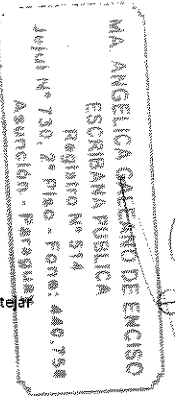 MA. ANGELICA GALEANO DE ENCISO
ESCRIBANA PUBLICA
Registro Nº 514
Nº 730, 2º Piso - Fono: 440,758
Asunción - Paraguay
tejar